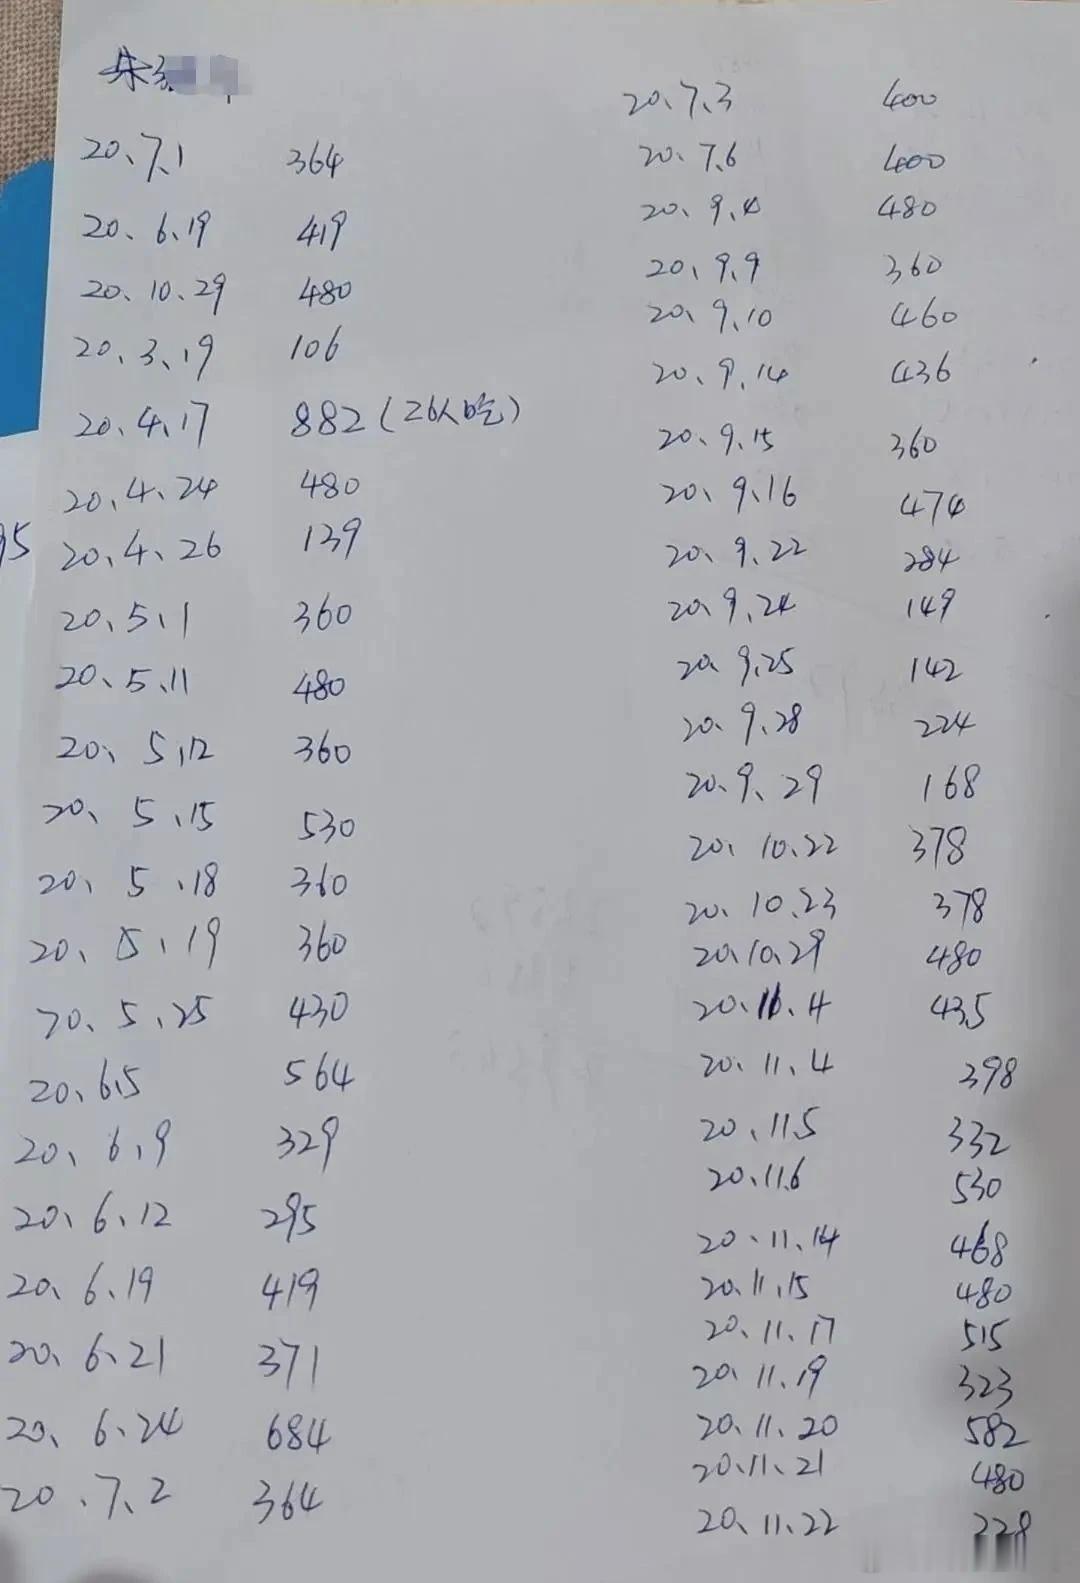 朱
20、7、1 364
20、6、19 419
20、10、29 480
20、3、19 106
20、4、17 882(26人吃)
20、4、24 480
95
20、4、26 139
20、5、1 360
20、5、11 480
20、5、12 360
20、5、15 530
20、5、18 360
20、5、19 360
20、5、25 430
20、6、5 564
20、6、9 329
20、6、12 295
20、6、19 419
20、6、21 371
20、6、24 684
20、7、2 364
20、7、3 400
20、7、6 400
20、9、4 480
20、9、9 360
20、9、10 460
20、9、14 436
20、9、15 360
20、9、16 474
20、9、22 284
20、9、24 149
20、9、25 142
20、9、28 224
20、9、29 168
20、10、22 378
20、10、23 378
20、10、29 480
20、11、4 435
20、11、4 398
20、11、5 332
20、11、6 530
20、11、14 468
20、11、15 480
20、11、17 515
20、11、19 323
20、11、20 582
20、11、21 480
20、11、22 228